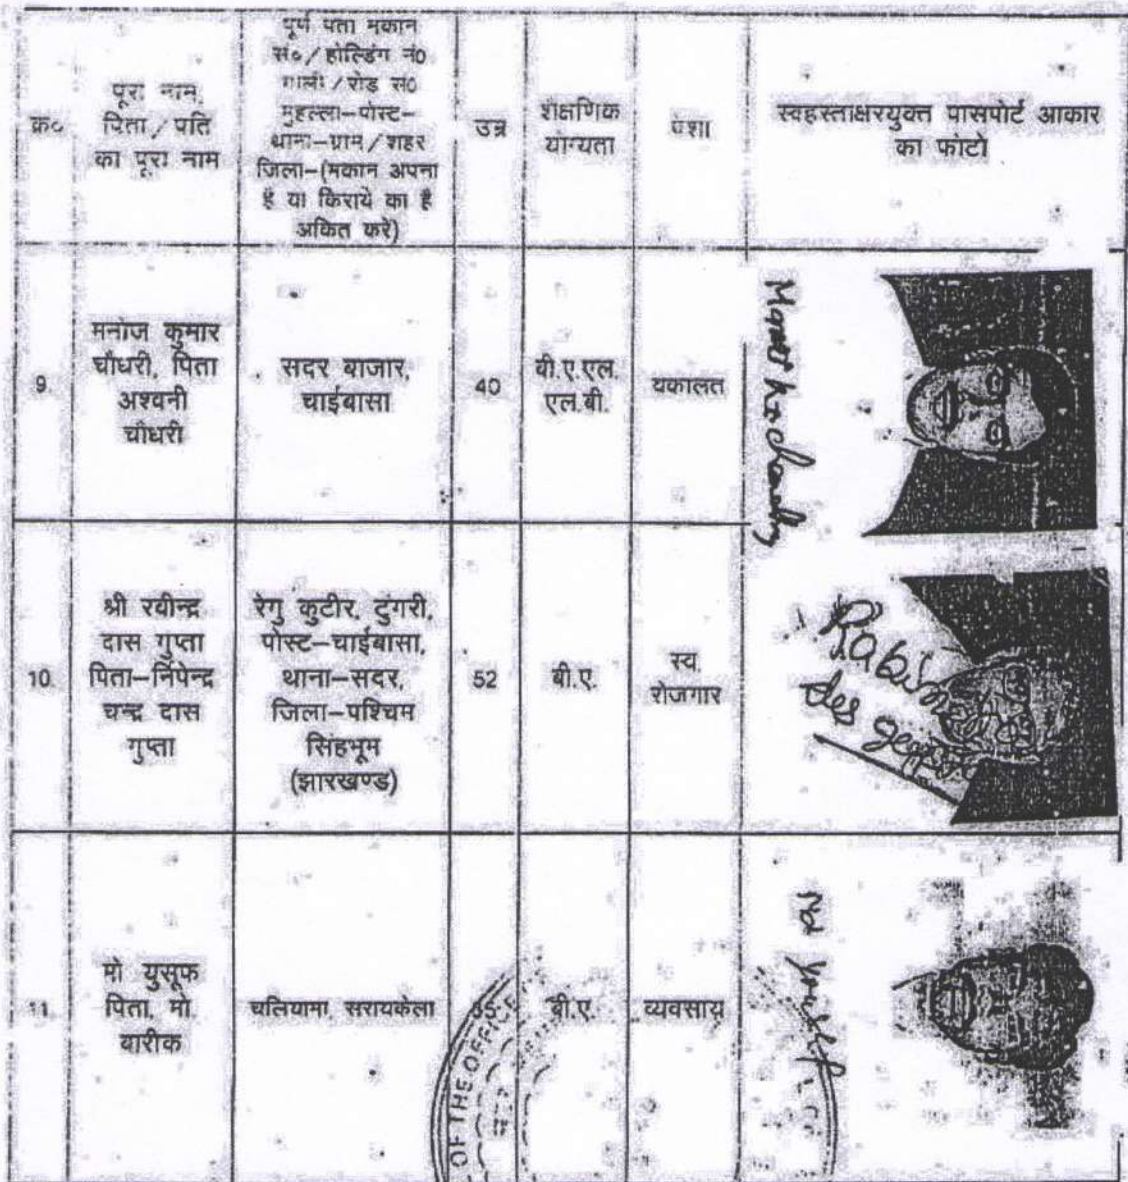 क्र०
पूरा नाम,
पिता/पति
का पूरा नाम
पूर्ण पता मकान
सं०/होल्डिंग नं०
गली/रोड सं०
मुहल्ला-पोस्ट-
थाना-ग्राम/शहर
जिला-(मकान अपना
है या किराये का है
अंकित करें)
उम्र
शैक्षणिक
योग्यता
पेशा
स्वहस्ताक्षरयुक्त पासपोर्ट आकार
का फोटो
9.
मनोज कुमार
चौधरी, पिता
अश्वनी
चौधरी
सदर बाजार,
चाईबासा
40
बी.ए.एल.
एल.बी.
वकालत
10.
श्री रवीन्द्र
दास गुप्ता
पिता-निपेन्द्र
चन्द्र दास
गुप्ता
रेगु कुटीर, टुंगरी,
पोस्ट-चाईबासा,
थाना-सदर,
जिला-पश्चिम
सिंहभूम
(झारखण्ड)
52
बी.ए.
स्व.
रोजगार
das gupta
11
मो युसूफ
पिता, मो
बारीक
चलियामा सरायकेला
बी.ए.
व्यवसाय
Md Yousuf
OF THE OFFICE